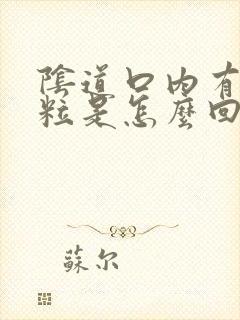 陰道口內有
粒是怎麼回
蘇尔